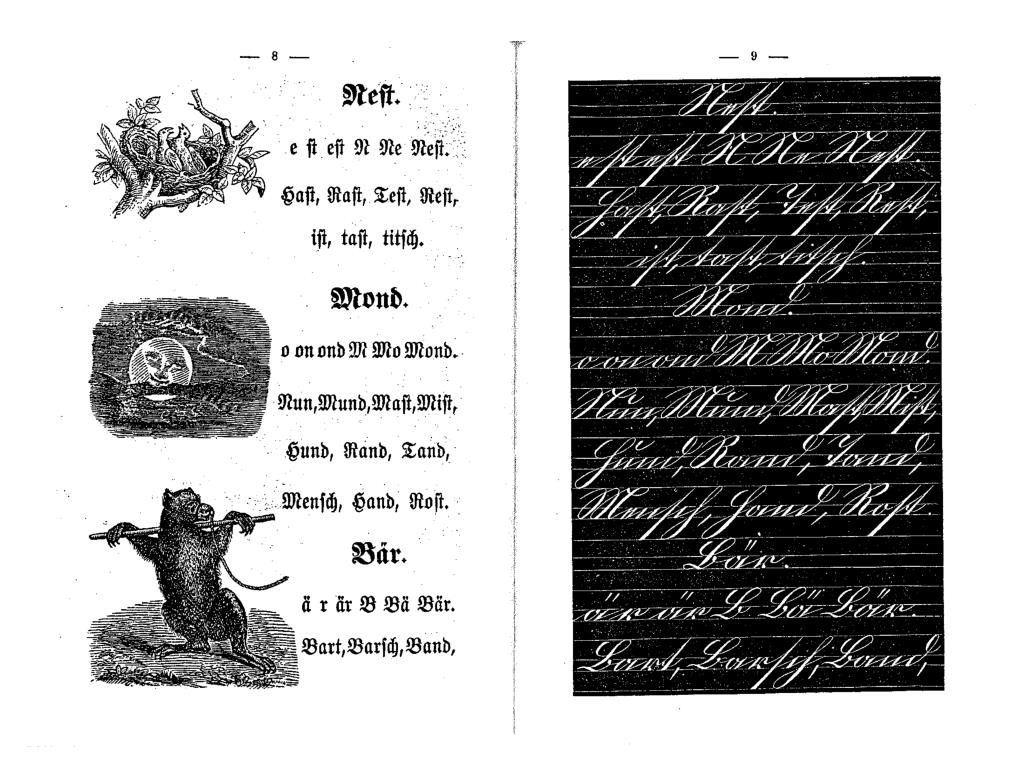 — 8 —
Nest.
e st est N Ne Nest.
Hast, Rast, Test, Nest,
ist, tast, titsch.
Mond.
o on ond M Mo Mond.
Nun, Mund, Mast, Mist,
Hund, Rand, Tand,
Mensch, Hand, Rost.
Bär.
ä r är B Bä Bär.
Bart, Barsch, Band,
— 9 —
Nest.
e st est N Ne Nest.
Hast, Rast, Test, Rest,
ist, tast, titsch.
Mond.
o on ond M Mo Mond.
Nun, Mund, Mast, Mist,
Hund, Rand, Tand,
Mensch, Hand, Rost.
Bär.
ä r är B Bä Bär.
Bart, Barsch, Band,